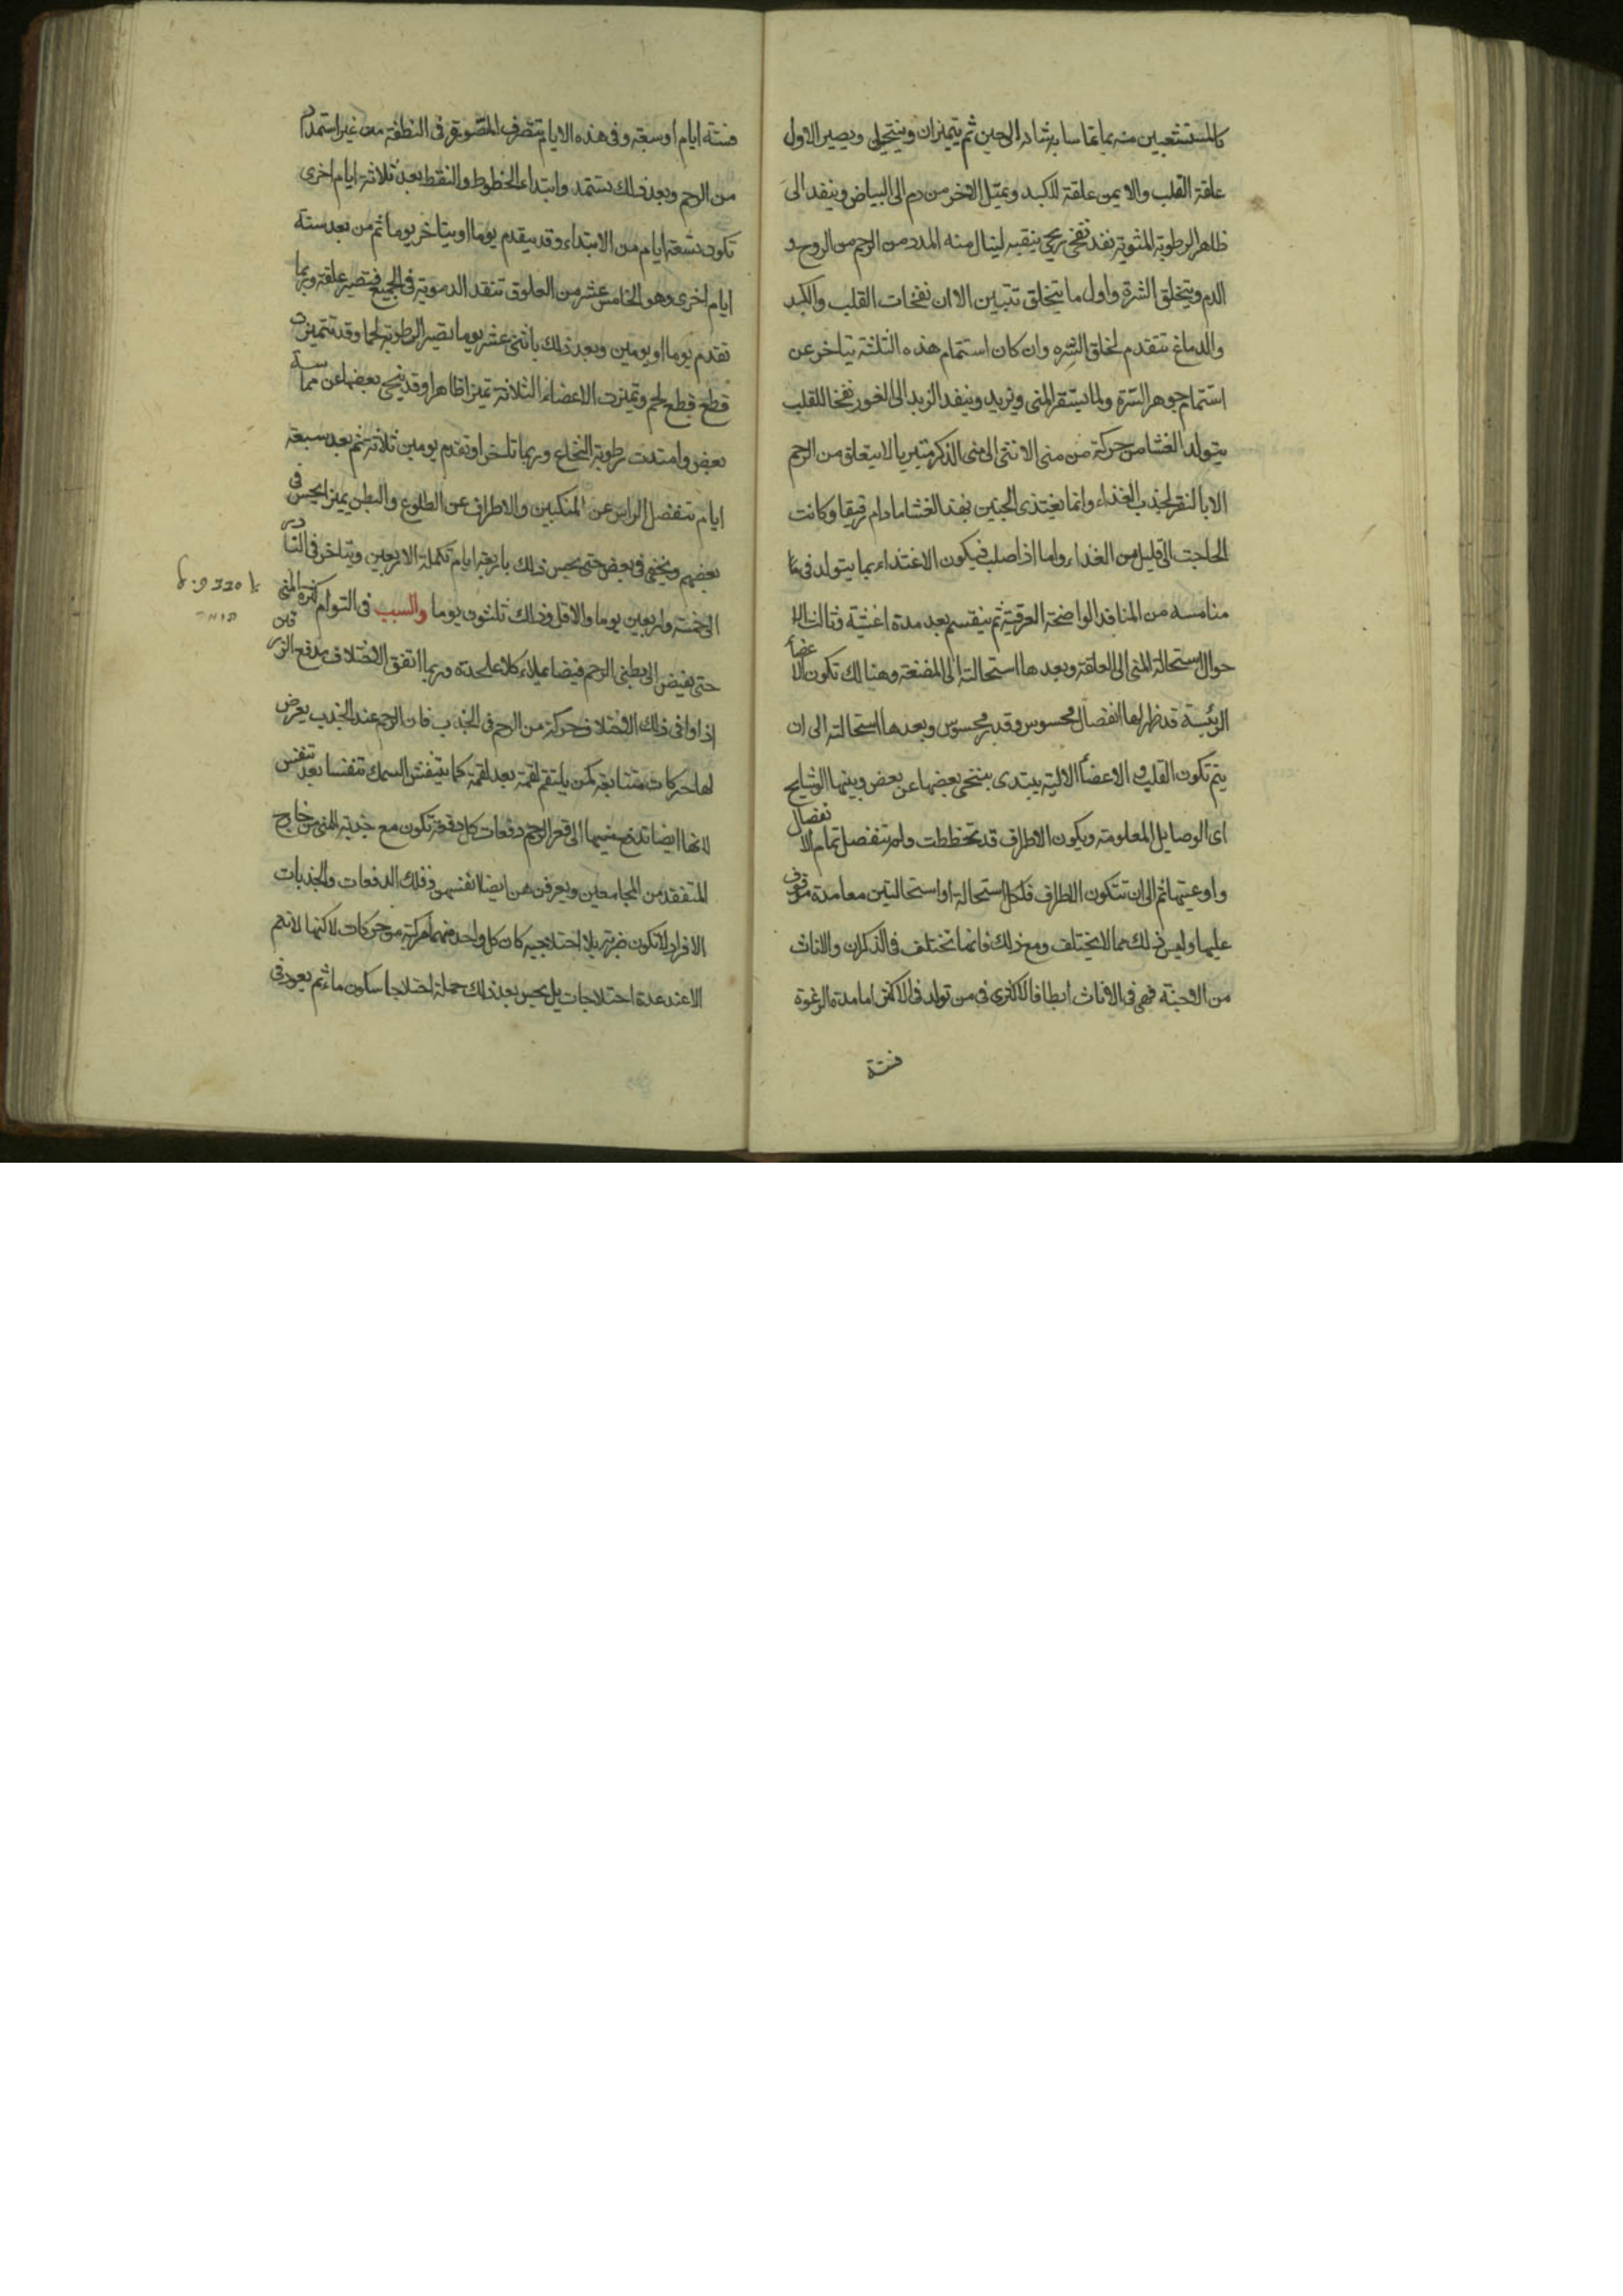 كالمستشعبين منه يماتما سا به شادالى حين ثم يتميزان ويتنحى ويصير الاول
علقة القلب والايمن علقة للكبد ويمتلى الاخر من دم الى البياض وينفد الى
ظاهر الرطوبة المثوية نفد نفخى ريحى ينقبه لينال منه المدد من الرحم من الروح و
الدم ويتخلق السرة واول ما يتخلق تتبين الا ان نفخات القلب والكبد
والدماغ تتقدم لخلق السره وان كان استتمام هذه الثلثة يتاخر عن
استتمام جوهر السرة ولما يستقر المنى ويزيد وينفد الزبد الى الغور نفخا للقلب
يتولد الغشا من حركة من منى الانثى الى منى الذكر متبريا لا يتعلق من الرحم
الا بالنقر لجذب الغذاء وانما يغتذى الجنين بهذ الغشا ما دام رقيقا وكانت
الحاجت الى قليل من الغذاء واما اذا صلب فيكون الاغتذاء بما يتولد فى ما
منامسه من المنافد الواضحة العرقية ثم ينقسم بعد مدة اغشية وثالث الا
حوال استحالة المنى الى العلقة وبعدها استحالته الى المضغة وهنا لك تكون الاعضأ
الريئسة قد ظهر لها انفصال محسوس وقدر محسوس وبعدها استحالته الى ان
يتم تكون القلب و الاعضأ الاالية يبتدى بتنحى بعضها عن بعض وبينها الوشايج
اى الوصايل المعلومة ويكون الاطراف قد تخططت ولم تنفصل تمام الانفصال
واوعيتها ثم الى ان تتكون الاطراف فلكل استحالة او استحالتين معا مدة موقوف
عليها وليس ذلك مما لا يختلف ومع ذلك فانما تختلف فى الذكران والاناث
من الاجنة فهى فى الاناث ابطا فالاكثرى فى من تولد فى الاكثر اما مدة الرغوة
فستة
فستة ايام او سبعة وفى هذه الايام تتصرف المصورة فى النطفة من غير استمداد
من الرحم وبعد ذلك تستمد وابتداء الخطوط والنقط بعد ثلاثة ايام اخرى
تكون تسعة ايام من الابتداء وقد يتقدم يوما او يتاخر يوما ثم من بعد ستة
ايام اخرى وهو الخامس عشر من العلوق تنفد الدموية فى الجميع فتصير علقة وربما
تقدم يوما او يومين وبعد ذلك باثنى عشر يوما تصير الرطوبة لحما وقد تتميزت
قطع قطع لحم وتميزت الاعضاء الثلاثة تميزا ظاهرا وقد ينحى بعضها عن مماسة
بعض وامتدت رطوبة النخاع وربما تاخر او تقدم يومين ثلاثة ثم بعد سبعة
ايام تنفصل الراس عن المنكبين والاطراف عن الضلوع والبطن يميز يحس فى
بعضهم ويخفى فى بعض حتى يحس ذلك باربعة ايام تكملة الاربعين ويتاخر فى النادر
الى خمسة واربعين يوما والاقل وذلك ثلثون يوما والسبب فى التوام كثرة المنى
حتى يفيض الى بطنى الرحم فيضا يملاء كلا على حدة وربما اتفق الاختلاف مدفع الزرقين
اذا وافى ذلك الاختلاف حركة من الرحم فى الجذب فان الرحم عند الجذب يعرض
لها حركات متتابعة كمن يلتقم لقمة بعد لقمة كما يتنفس السمك تنفسا بعد تنفس
لانها ايضا تدفع منيها الى قعر الرحم دفعات كل دفعة تكون مع جذبة المنى من خارج
المتفقد من المجامعين ويعرفن هن ايضا انفسهن وذلك الدفعات والجذبات
الافراد لا تكون ضربة بلا اختلاجية كان كل واحد منهما مركبة من حركات لاكنها لا تتم
الا عند عدة اختلاجات بل يحس بعد ذلك حملة اختلاجا سكون ما ثم يعود فى